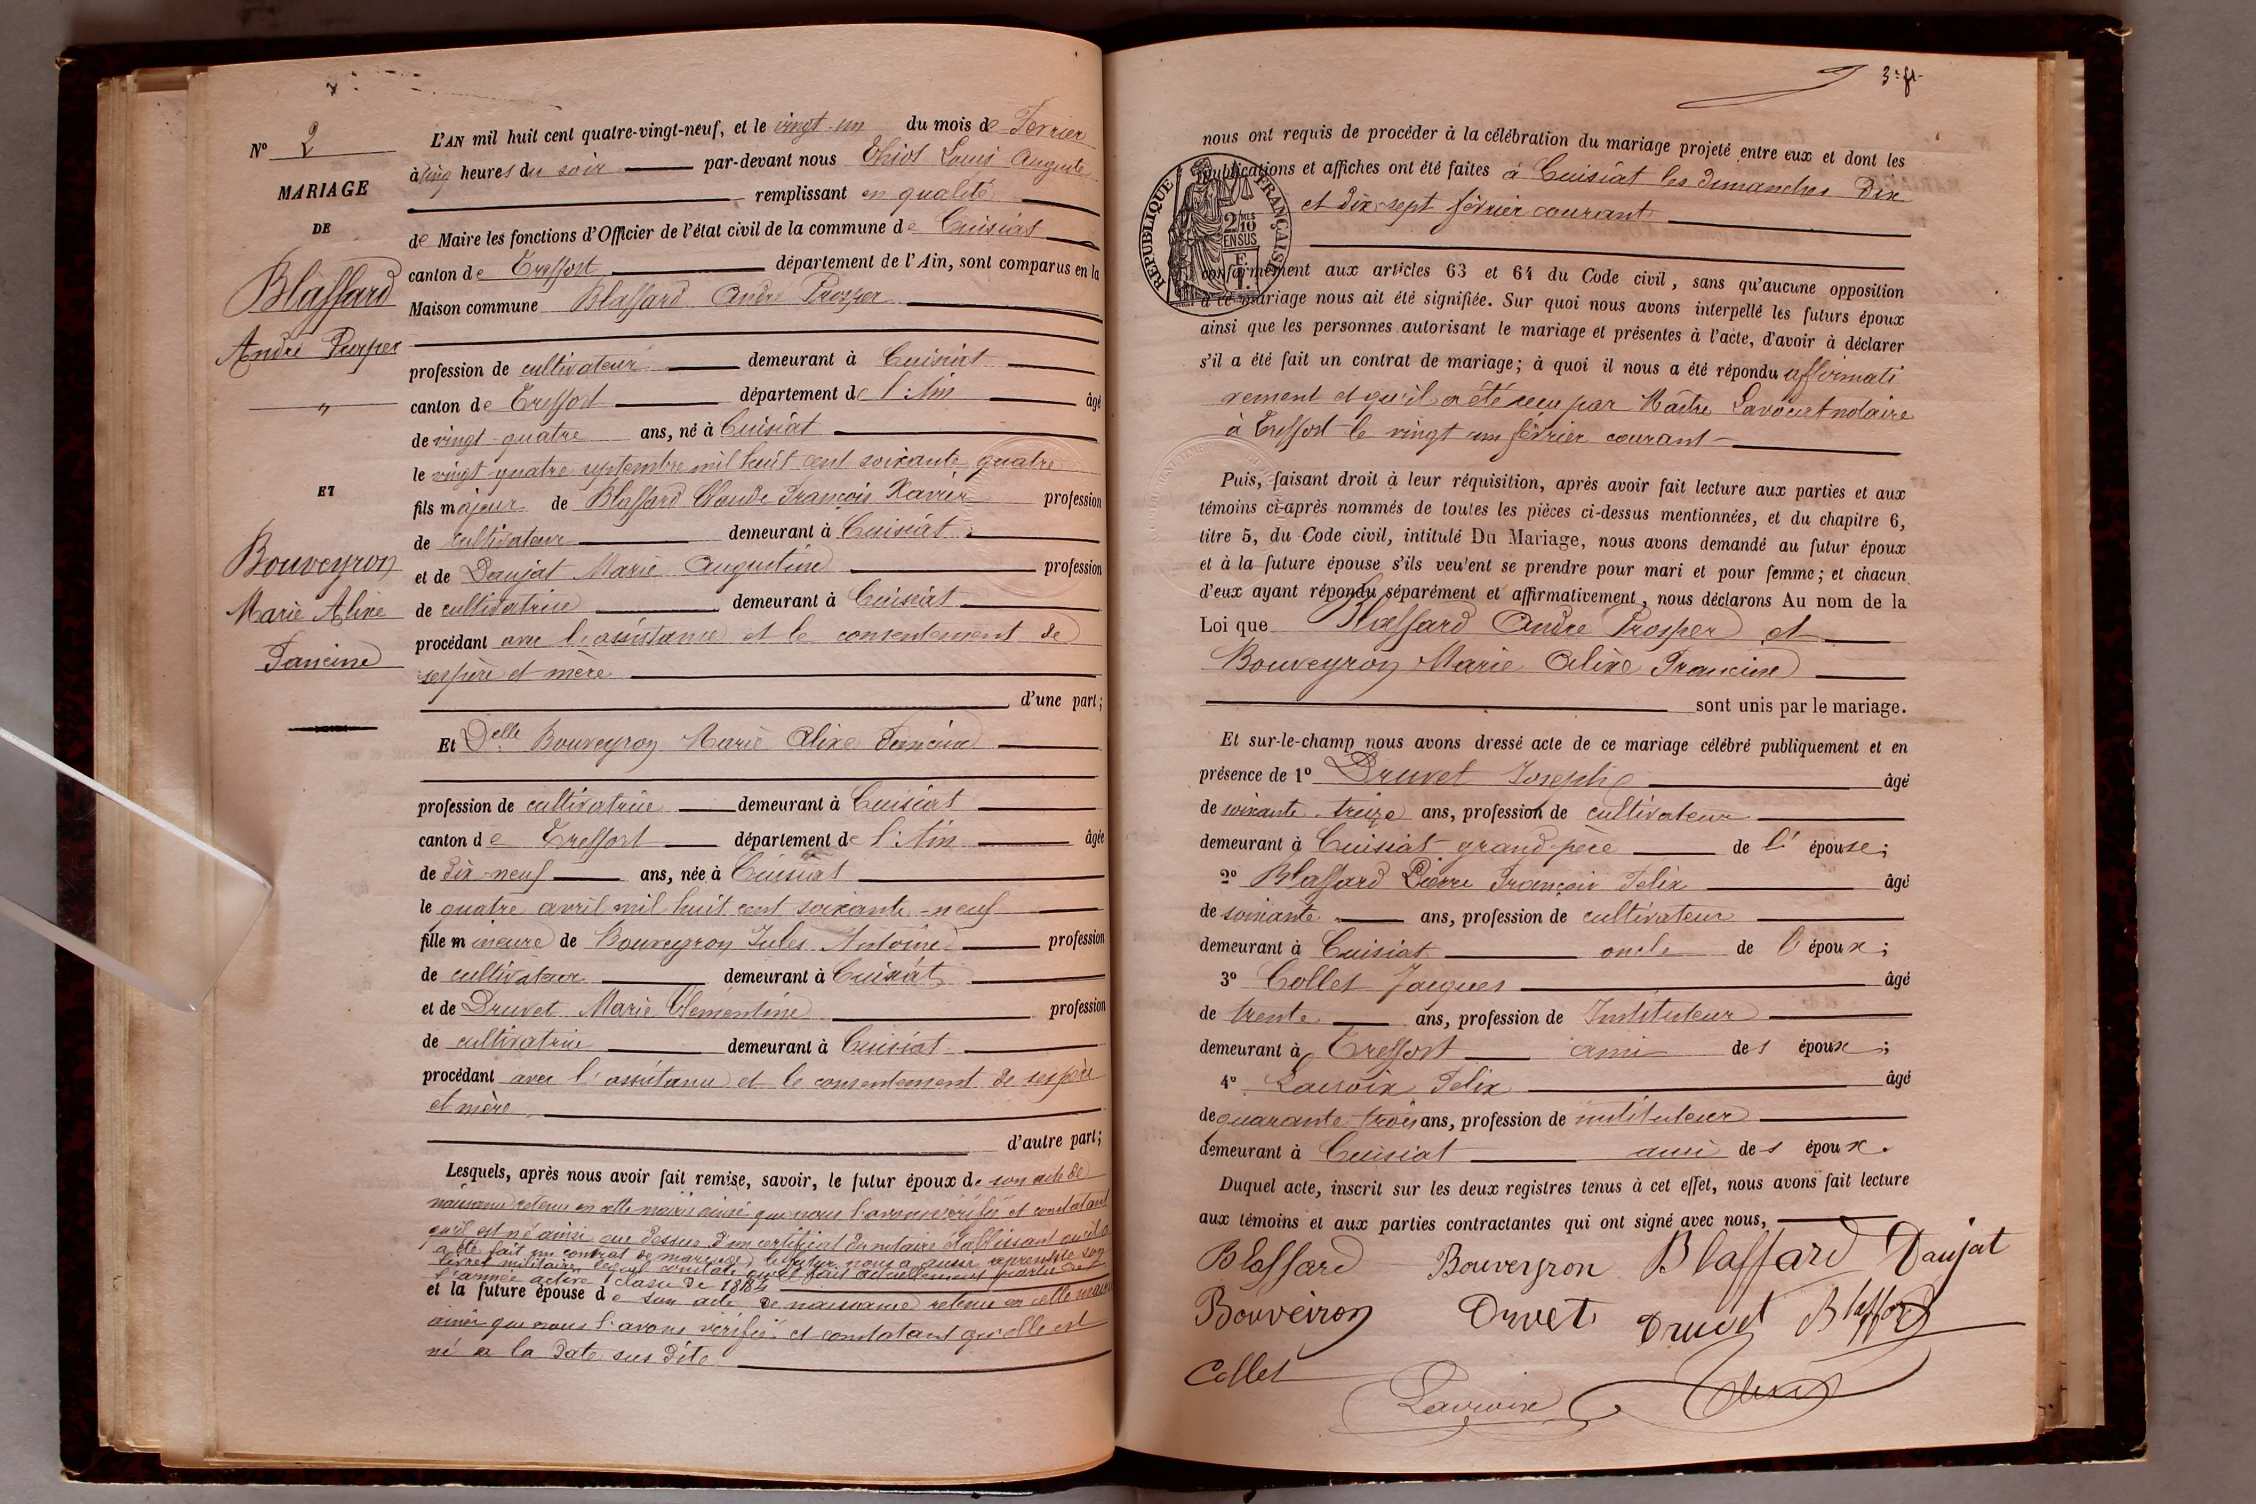 N° 2
MARIAGE
DE
Blaffard
André Prosper
"
ET
Bouveyron
Marie Alixe
Francine
L'AN mil huit cent quatre-vingt-neuf, et le vingt-un du mois de Fevrier
à cinq heures du soir par-devant nous Thiot Louis Auguste
remplissant en qualité
de Maire les fonctions d'Officier de l'état civil de la commune de Cuisiat
canton de Treffort département de l'Ain, sont comparus en la
Maison commune Blaffard André Prosper
profession de cultivateur demeurant à Cuisiat
canton de Treffort département de l'Ain âgé
de vingt-quatre ans, né à Cuisiat
le vingt-quatre septembre mil huit cent soixante quatre
fils majeur de Blaffard Claude François Xavier profession
de cultivateur demeurant à Cuisiat
et de Daujat Marie Augustine profession
de cultivatrice demeurant à Cuisiat
procédant avec l'assistance et le consentement de
ses père et mère
d'une part;
Et Delle Bouveyron Marie Alixe Francine
profession de cultivatrice demeurant à Cuisiat
canton de Treffort département de l'Ain âgée
de dix-neuf ans, née à Cuisiat
le quatre avril mil huit cent soixante-neuf
fille mineure de Bouveyron Jules Antoine profession
de cultivateur demeurant à Cuisiat
et de Druvet Marie Clémentine profession
de cultivatrice demeurant à Cuisiat
procédant avec l'assistance et le consentement de ses père
et mère
d'autre part;
Lesquels, après nous avoir fait remise, savoir, le futur époux de son acte de
naissance retenu en cette mairie ainsi que nous l'avons vérifié et constatant
qu'il est né ainsi que dessus d'un certificat du notaire établissant qu'il a
a été fait un contrat de mariage, le futur nous a aussi représenté son
livret militaire lequel constate qu'il fait actuellement partie de
l'armée active classe de 1884
et la future épouse de son acte de naissance retenu en cette mairie
ainsi que nous l'avons vérifié et constatant qu'elle est
né a la date sus dite
3e ft
nous ont requis de procéder à la célébration du mariage projeté entre eux et dont les
publications et affiches ont été faites à Cuisiat les dimanches dix
et dix-sept février courant
RÉPUBLIQUE FRANÇAISE
2/10
EN SUS
conformément aux articles 63 et 64 du Code civil, sans qu'aucune opposition
à ce mariage nous ait été signifiée. Sur quoi nous avons interpellé les futurs époux
ainsi que les personnes autorisant le mariage et présentes à l'acte, d'avoir à déclarer
s'il a été fait un contrat de mariage; à quoi il nous a été répondu affirmati
vement et qu'il a été reçu par Maître Lavocat notaire
à Treffort le vingt un février courant
Puis, faisant droit à leur réquisition, après avoir fait lecture aux parties et aux
témoins ci-après nommés de toutes les pièces ci-dessus mentionnées, et du chapitre 6,
titre 5, du Code civil, intitulé Du Mariage, nous avons demandé au futur époux
et à la future épouse s'ils veulent se prendre pour mari et pour femme; et chacun
d'eux ayant répondu séparément et affirmativement, nous déclarons Au nom de la
Loi que Blaffard André Prosper et
Bouveyron Marie Alixe Francine
sont unis par le mariage.
Et sur-le-champ nous avons dressé acte de ce mariage célébré publiquement et en
présence de 1° Druvet Joseph âgé
de soixante treize ans, profession de cultivateur
demeurant à Cuisiat grand-père de l'épouse;
2° Blaffard Pierre François Felix âgé
de soixante ans, profession de cultivateur
demeurant à Cuisiat oncle de l'époux;
3° Collet Jacques âgé
de trente ans, profession de Instituteur
demeurant à Treffort ami des époux;
4° Lacroix Felix âgé
de quarante trois ans, profession de instituteur
demeurant à Cuisiat ami des époux.
Duquel acte, inscrit sur les deux registres tenus à cet effet, nous avons fait lecture
aux témoins et aux parties contractantes qui ont signé avec nous,
Blaffard Bouveyron Blaffard Daujat
Bouveiron Druvet Druvet Blaffard
Collet Lacroix